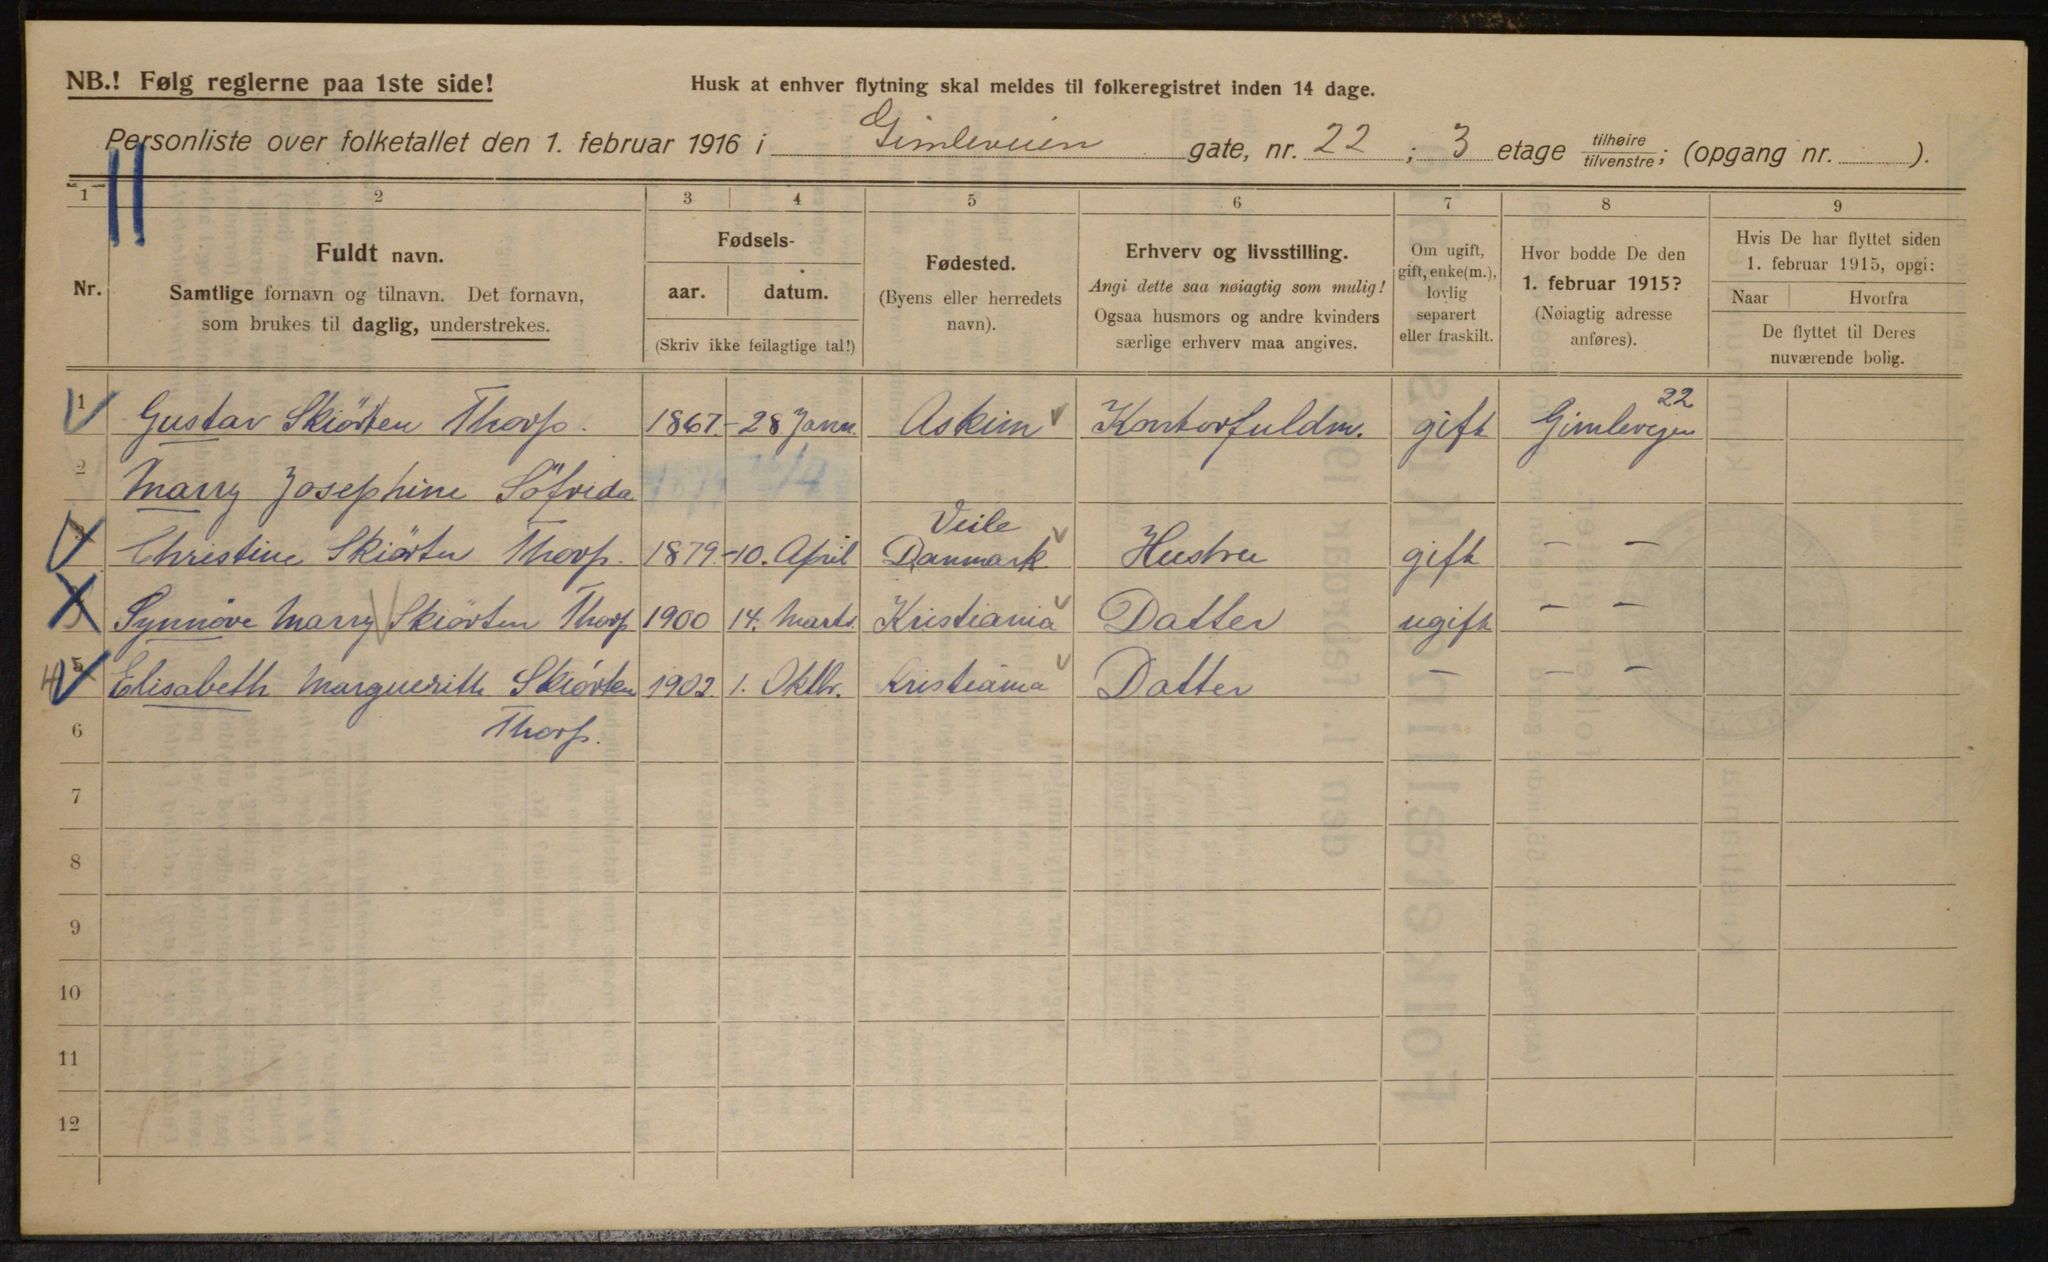 NB.! Følg reglerne paa 1ste side!
Husk at enhver flytning skal meldes til folkeregistret inden 14 dage.
Personliste over folketallet den 1. februar 1916 i Gimleveien gate, nr. 22 ; 3 etage tilhøire/tilvenstre; (opgang nr. ).
1 2 3 4 5 6 7 8 9
Nr.
Fuldt navn.
Samtlige fornavn og tilnavn. Det fornavn,
som brukes til daglig, understrekes.
Fødsels-
aar. datum.
(Skriv ikke feilagtige tal!)
Fødested.
(Byens eller herredets
navn).
Erhverv og livsstilling.
Angi dette saa nøiagtig som mulig!
Ogsaa husmors og andre kvinders
særlige erhverv maa angives.
Om ugift,
gift, enke(m.),
lovlig
separert
eller fraskilt.
Hvor bodde De den
1. februar 1915?
(Nøiagtig adresse
anføres).
Hvis De har flyttet siden
1. februar 1915, opgi:
Naar Hvorfra
De flyttet til Deres
nuværende bolig.
1 Gustav Skiörten Thorp. 1867.- 28 Janu. Askim Kontorfuldm. gift Gimlevejen 22
2 Marry Josephine Söfrida
Christine Skiörten Thorp. 1879.- 10. April Veile Danmark. Hustru gift — —
Synnöve Marry Skiörten Thorp 1900 14. Marts Kristiania Datter ugift — —
5 Elisabeth Marguerith Skiörten 1902 1. Oktbr. Kristiania Datter — — —
6 Thorp.
7
8
9
10
11
12